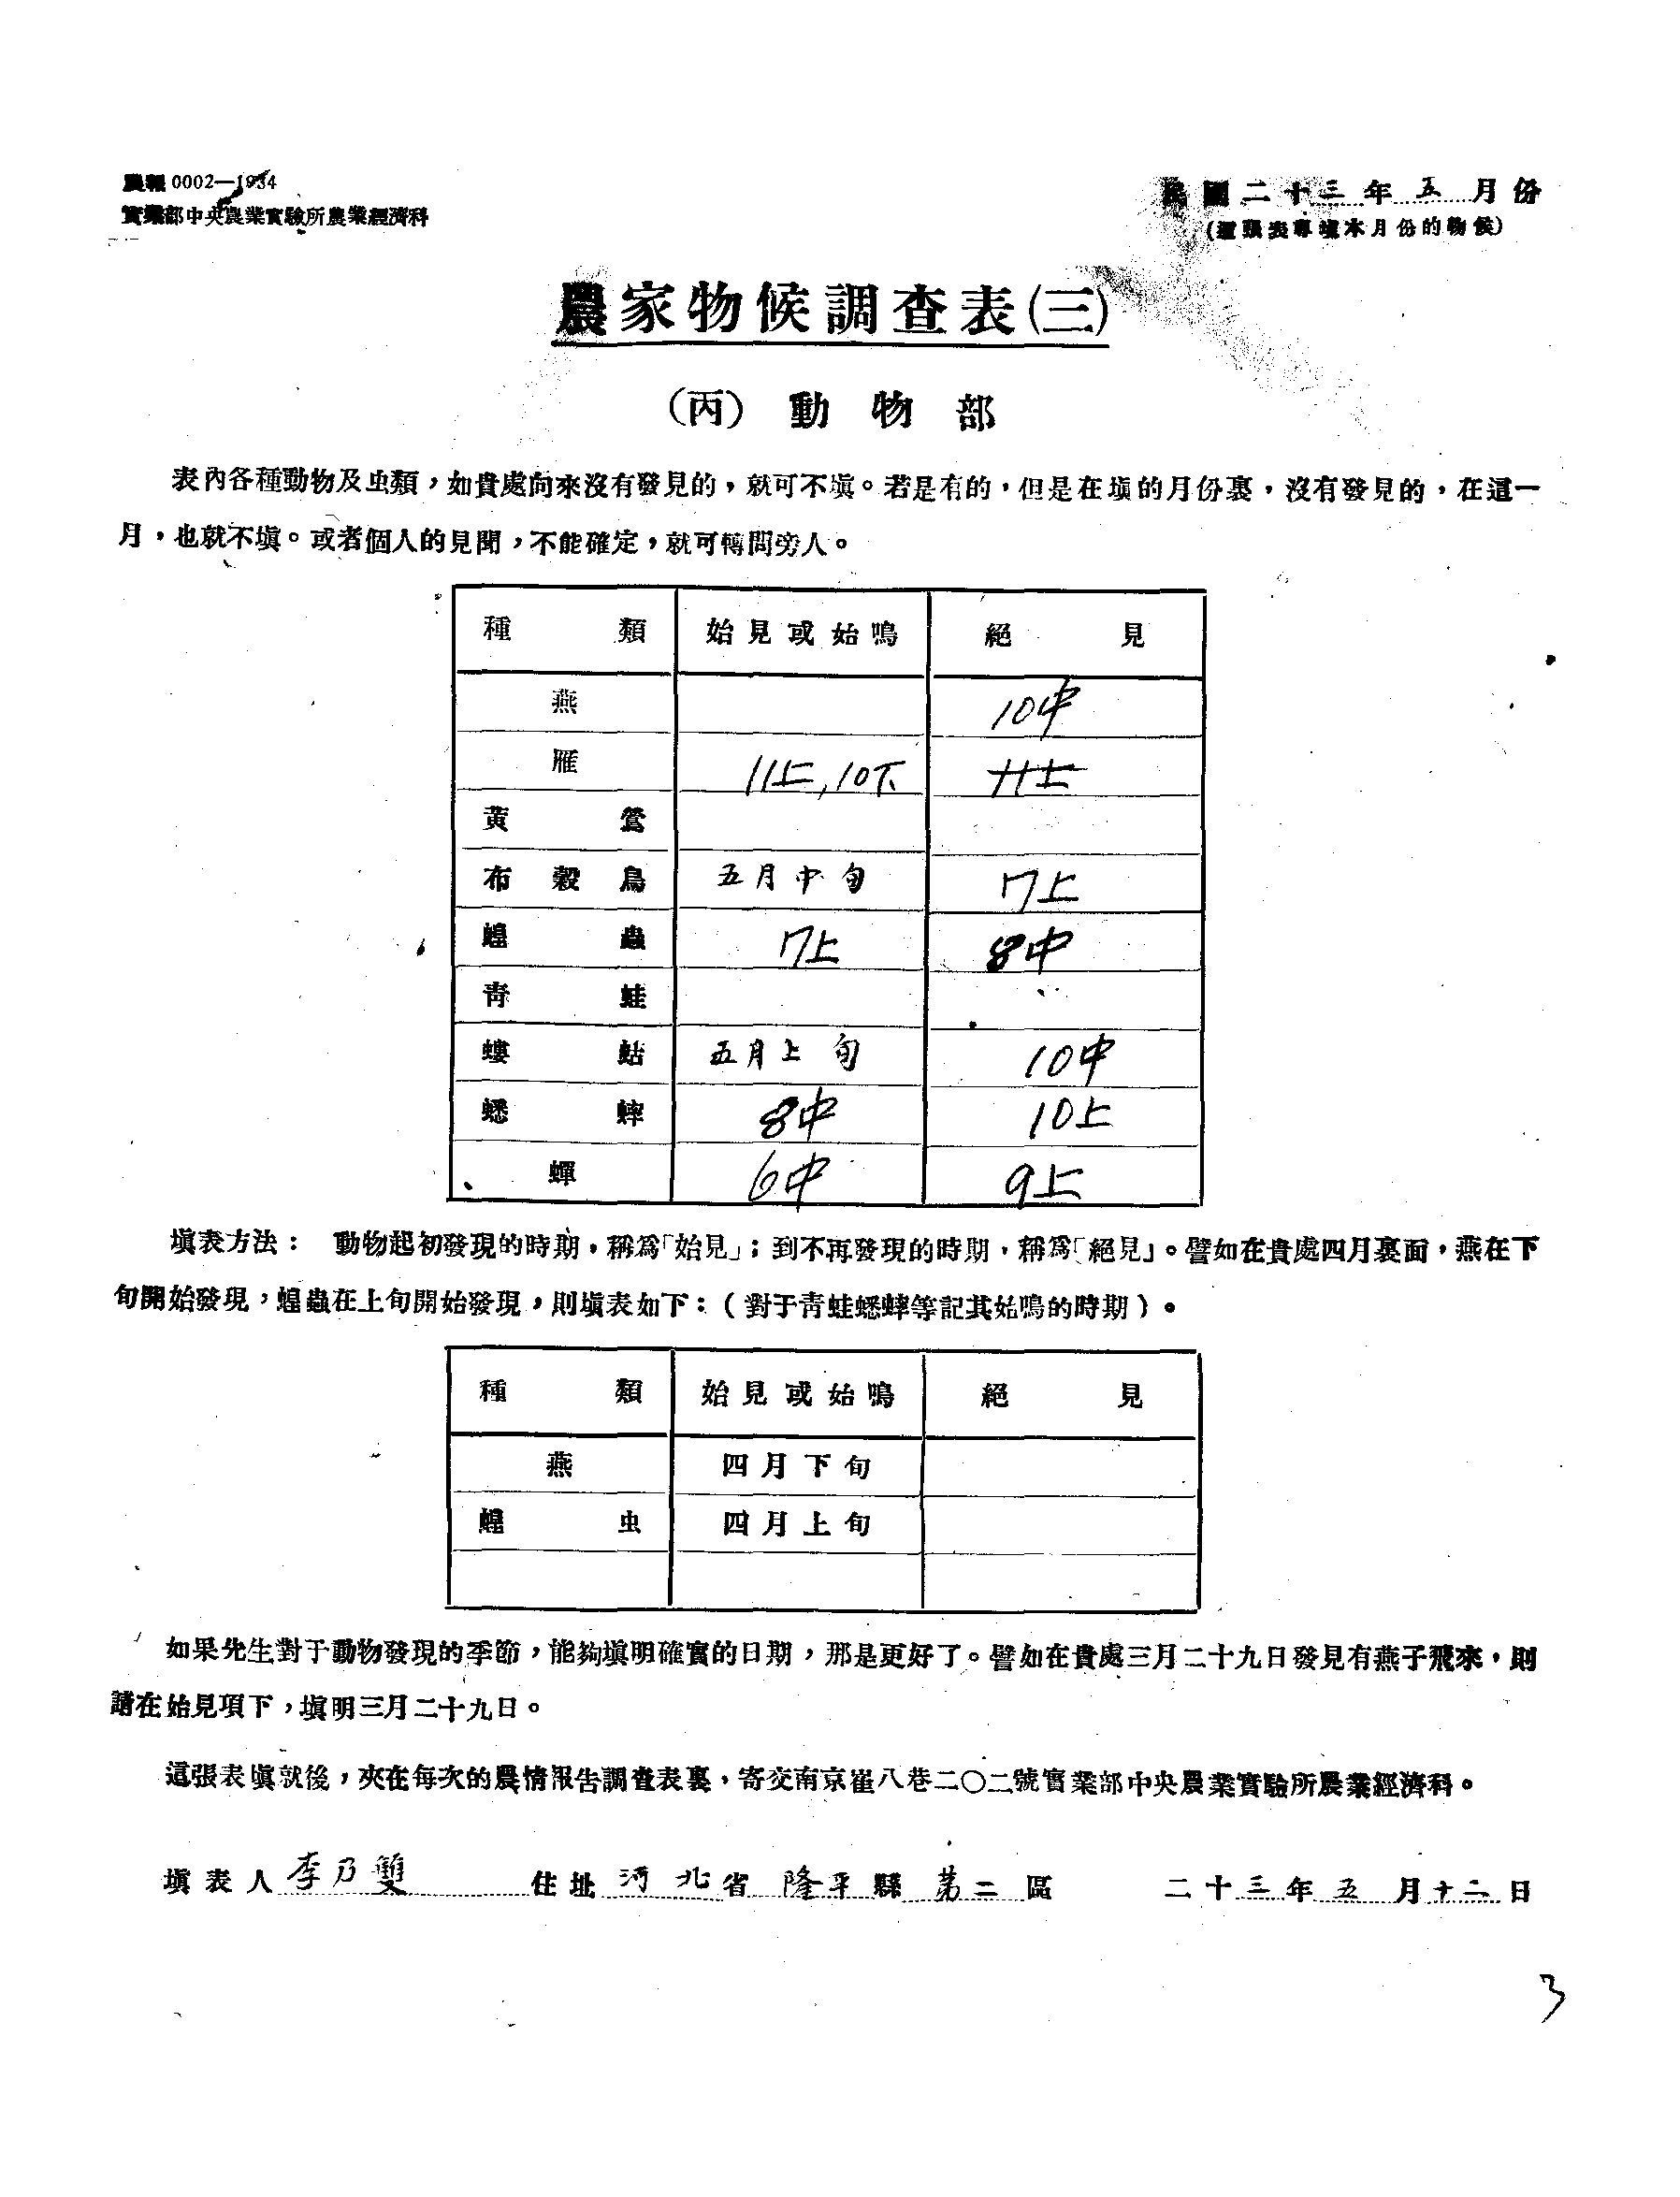 農報 0002—1934
實業部中央農業實驗所農業經濟科
民國二十三年五月份
(這張表專填本月份的物候)
農家物候調查表(三)
(丙) 動物部
表內各種動物及虫類，如貴處向來沒有發見的，就可不塡。若是有的，但是在塡的月份裏，沒有發見的，在這一
月，也就不塡。或者個人的見聞，不能確定，就可轉問旁人。
種類 始見或始鳴 絕見
燕 10中
雁 11上,10下 11上
黃鶯
布穀鳥 五月中旬 7上
蝗蟲 7上 8中
靑蛙
螻蛄 五月上旬 10中
蟋蟀 8中 10上
蟬 6中 9上
塡表方法： 動物起初發現的時期，稱爲「始見」；到不再發現的時期，稱爲「絕見」。譬如在貴處四月裏面，燕在下
旬開始發現，蝗蟲在上旬開始發現，則塡表如下：（對于靑蛙蟋蟀等記其始鳴的時期）。
種類 始見或始鳴 絕見
燕 四月下旬
蝗虫 四月上旬
如果先生對于動物發現的季節，能夠塡明確實的日期，那是更好了。譬如在貴處三月二十九日發見有燕子飛來，則
請在始見項下，塡明三月二十九日。
這張表塡就後，夾在每次的農情報告調查表裏，寄交南京崔八巷二〇二號實業部中央農業實驗所農業經濟科。
塡表人 李乃雙 住址 河北省 隆平縣 第二區 二十三年五月十二日
3